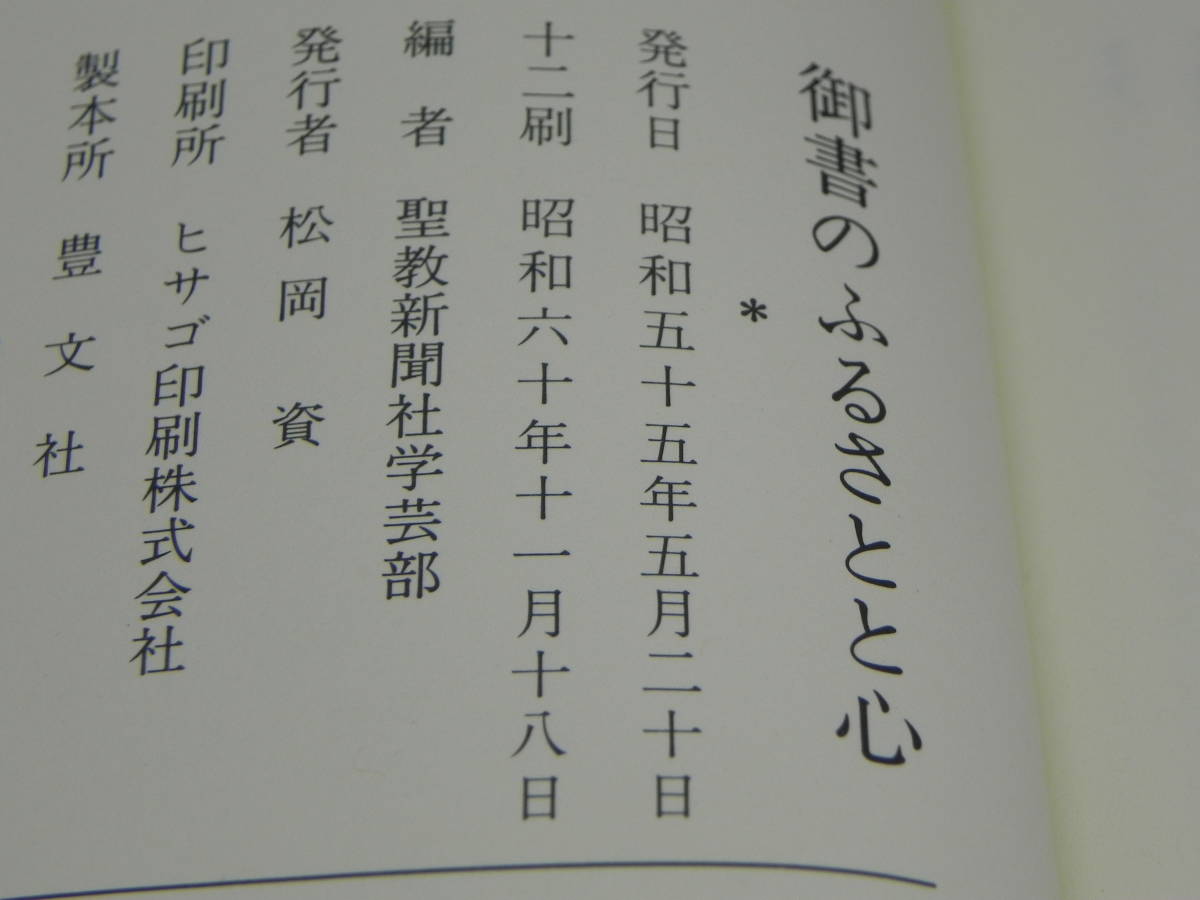 御書のふるさとと心
*
発行日 昭和五十五年五月二十日
十二刷 昭和六十年十一月十八日
編者 聖教新聞社学芸部
発行者 松岡資
印刷所 ヒサゴ印刷株式会社
製本所 豊文社